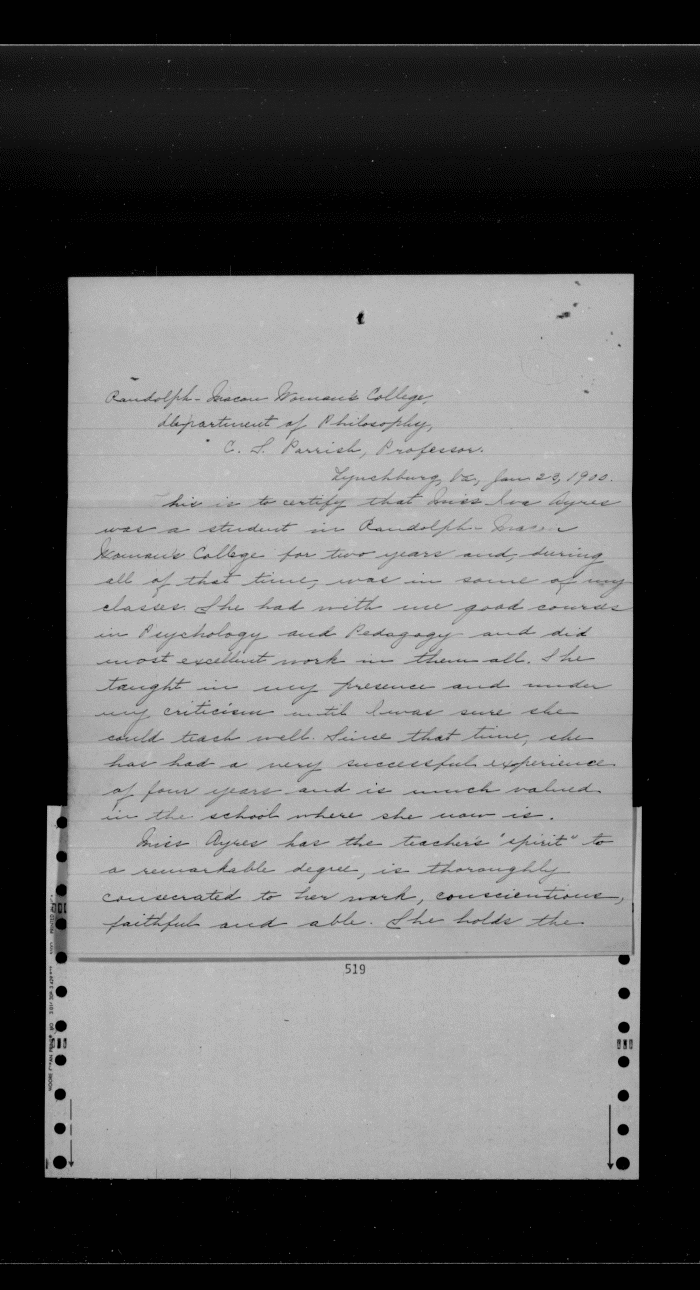 Randolph-Macon Woman's College,
Department of Philosophy,
C. S. Parrish, Professor.
Lynchburg, Va., Jan 23, 1900.
This is to certify that Miss Iva Ayres
was a student in Randolph-Macon
Woman's College for two years and, during
all of that time, was in some of my
classes. She had with me good courses
in Psychology and Pedagogy and did
most excellent work in them all. She
taught in my presence and under
my criticism until I was sure she
could teach well. Since that time, she
has had a very successful experience
of four years and is much valued
in the school where she now is.
Miss Ayres has the teacher's "spirit" to
a remarkable degree, is thoroughly
consecrated to her work, conscientious,
faithful and able. She holds the
519